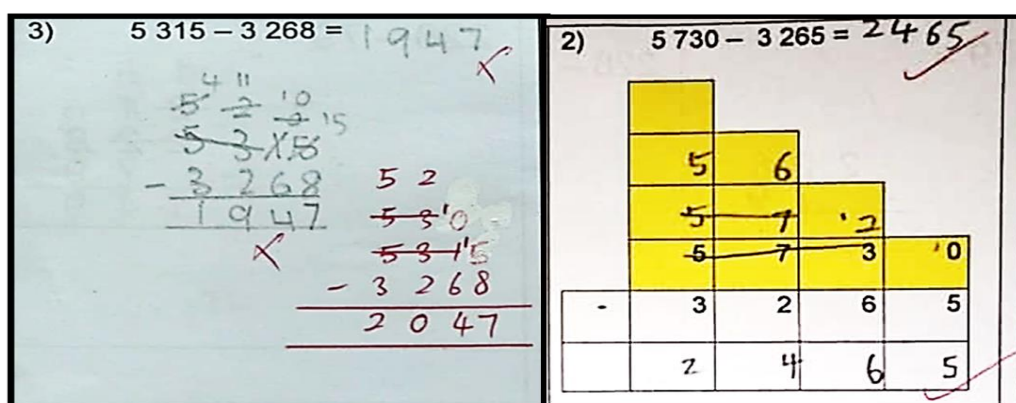 3) 5 315 – 3 268 = 1947
4 11
5 2 10
5 3 1 5 15
- 3 2 6 8
1 9 4 7
5 2
5 3 '0
5 3 1 '5
- 3 2 6 8
2 0 4 7
2) 5 730 – 3 265 = 2465
5 6
5 7 '2
5 7 3 '0
- 3 2 6 5
2 4 6 5